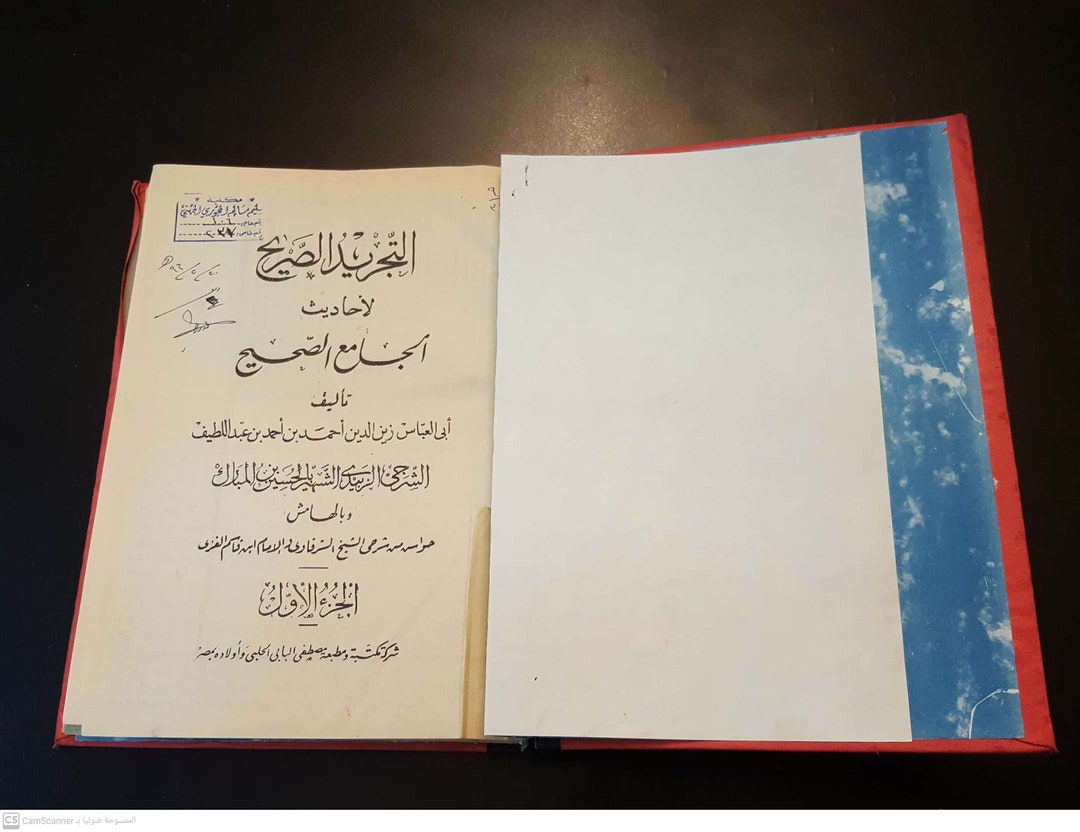 مكتبة
التجريد الصريح
لأحاديث
الجامع الصحيح
تأليف
أبى العباس زين الدين أحمد بن أحمد بن عبد اللطيف
الشرجى الزبيدى الشهير بالحسين بن المبارك
وبالهامش
حواش من شرحى الشيخ الشرقاوى والإمام ابن قاسم الغزى
الجزء الأول
شركة مكتبة ومطبعة مصطفى البابى الحلبى وأولاده بمصر
CS CamScanner الممسوحة ضوئيا بـ